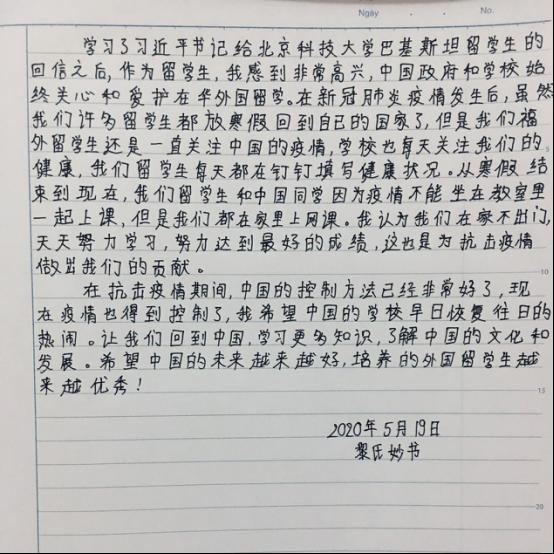 Ngày . . No.
学习了习近平书记给北京科技大学巴基斯坦留学生的
回信之后,作为留学生,我感到非常高兴,中国政府和学校始
终关心和爱护在华外国留学。在新冠肺炎疫情发生后,虽然
我们许多留学生都放寒假回到自己的国家了,但是我们
外留学生还是一直关注中国的疫情,学校也每天关注我们的
健康,我们留学生每天都在钉钉填写健康状况。从寒假结
束到现在,我们留学生和中国同学因为疫情不能坐在教室里
一起上课,但是我们都在家里上网课。我认为我们在家不出门,
天天努力学习,努力达到最好的成绩,这也是为抗击疫情
做出我们的贡献。
在抗击疫情期间,中国的控制方法已经非常好了,现
在疫情也得到控制了,我希望中国的学校早日恢复往日的
热闹。让我们回到中国,学习更多知识,了解中国的文化和
发展。希望中国的未来越来越好,培养的外国留学生越
来越优秀!
2020年5月19日
黎氏妙书
5
10
15
20